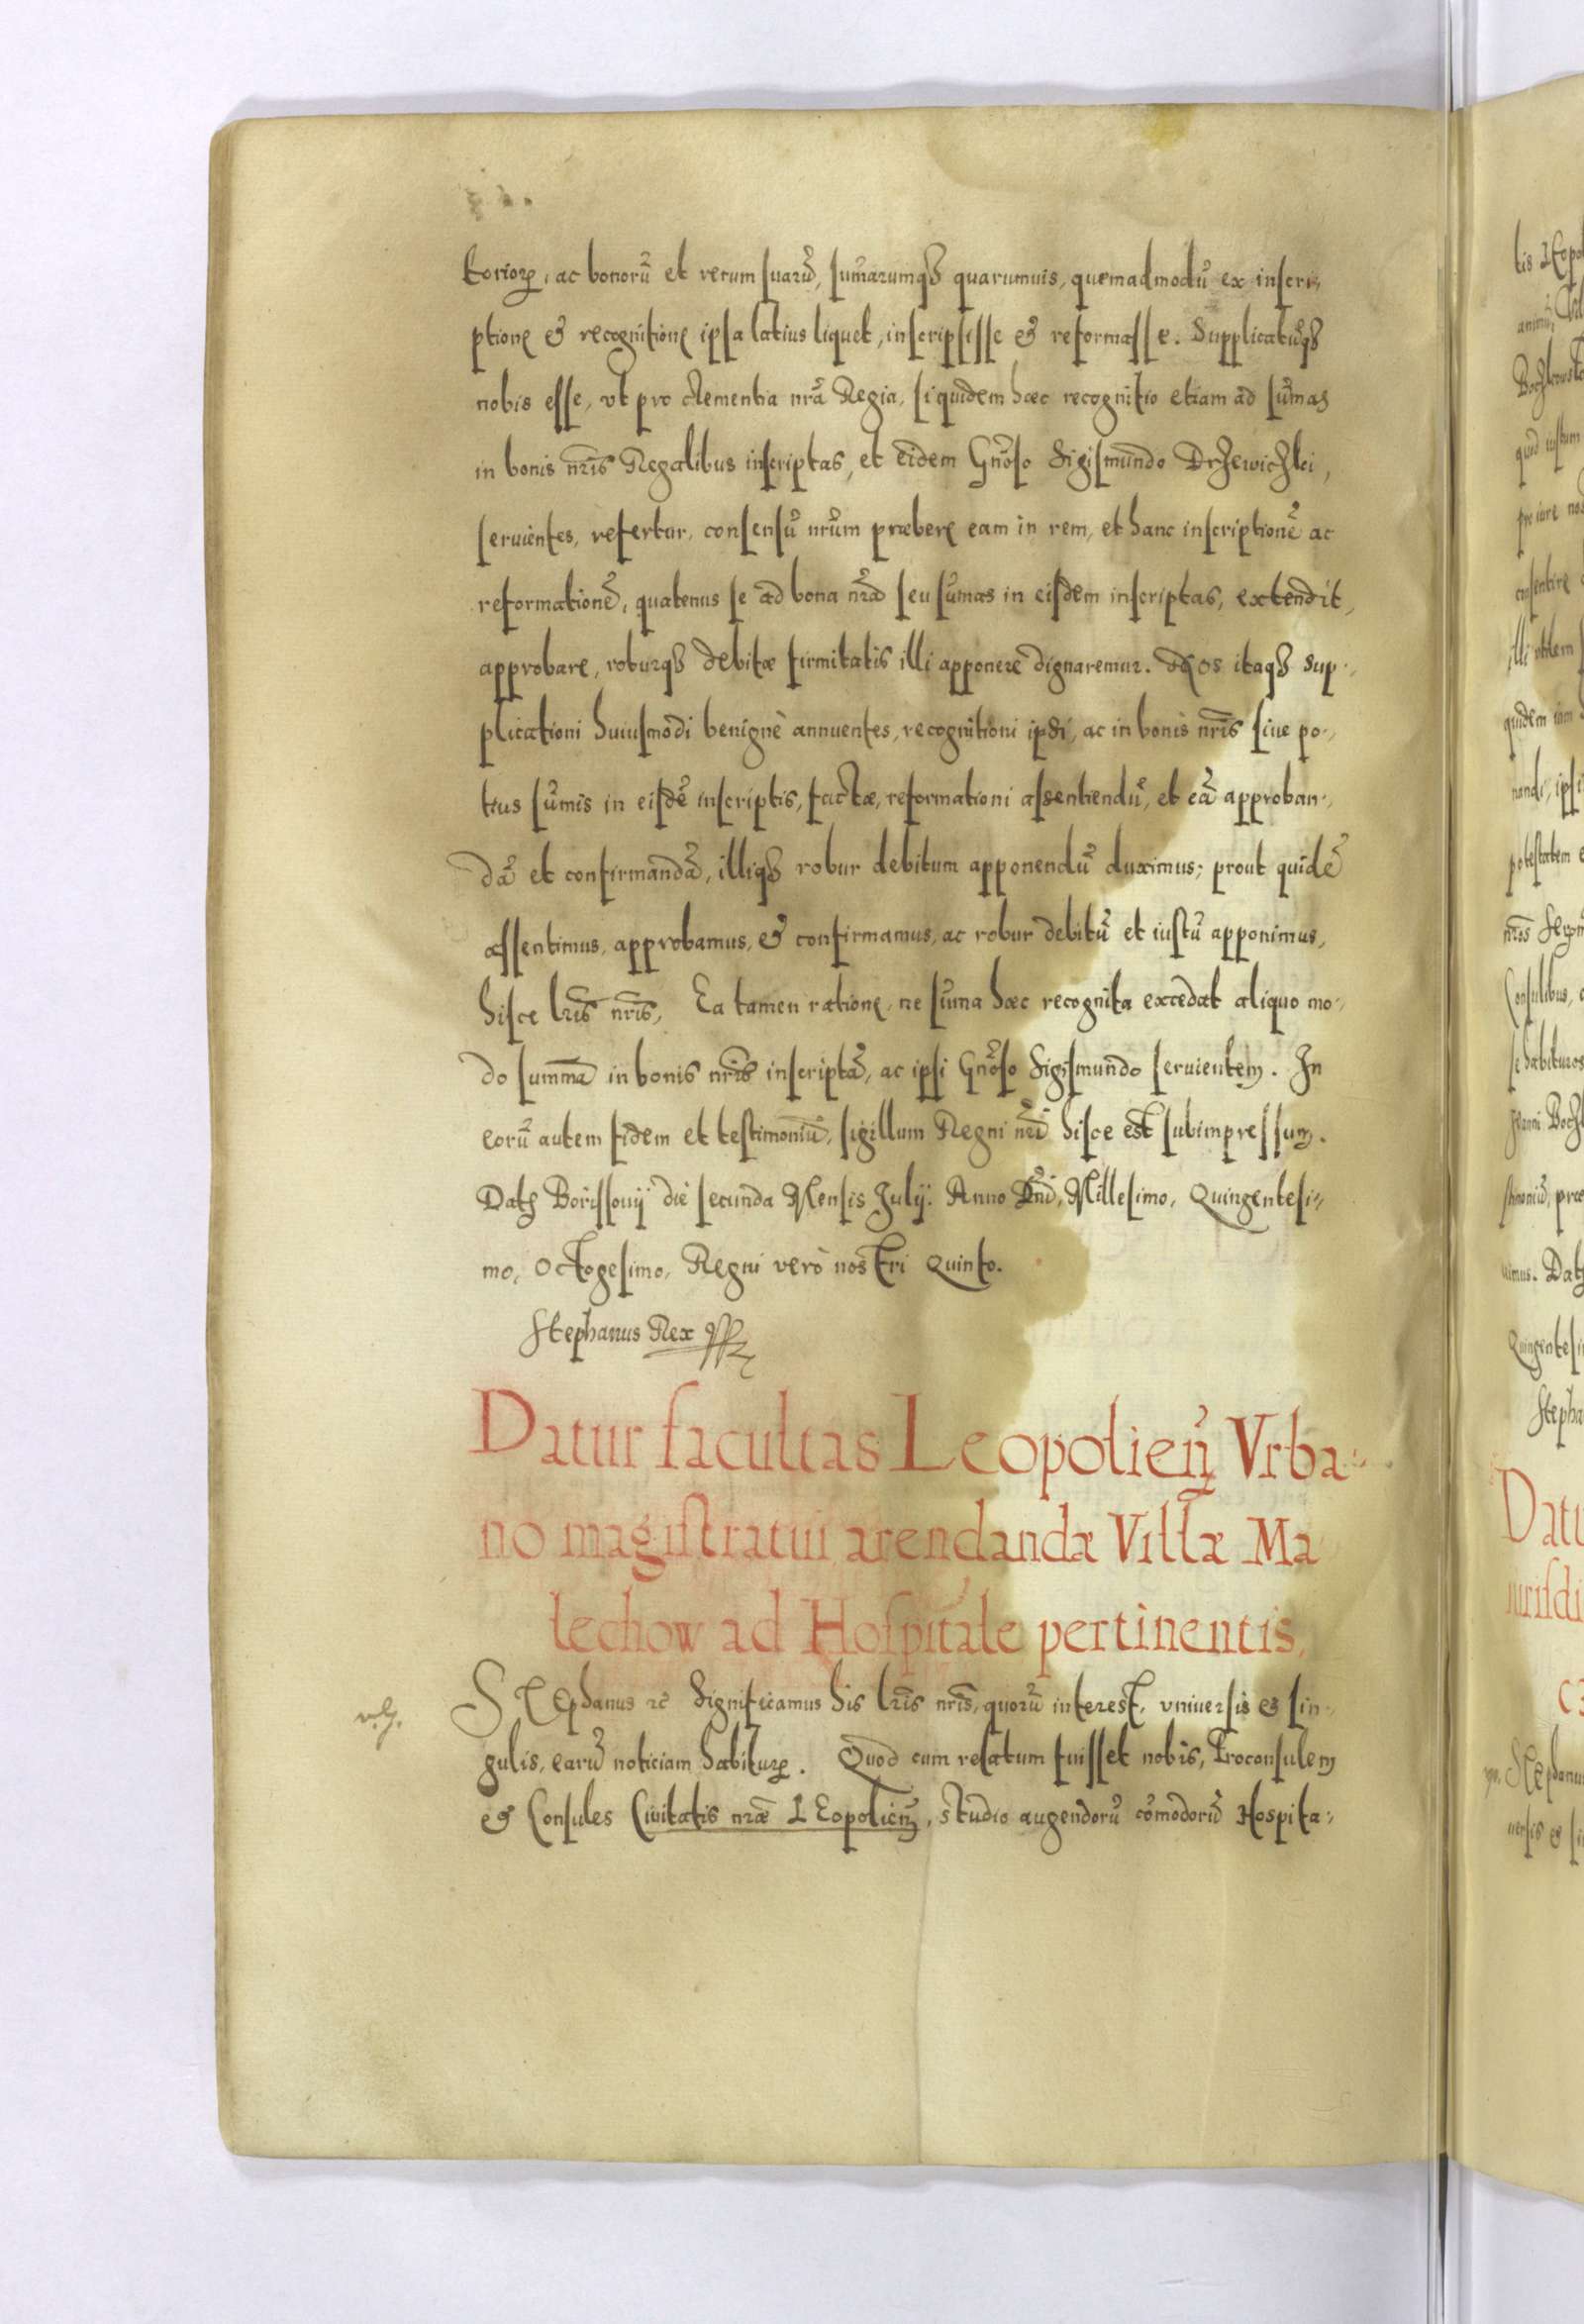 toriorꝝ, ac bonorū et rerum suarū, sum̄arumqꝫ quarumuis, quemadmodū ex inscri-
ptione & recognitione ipsa latius liquet, inscripsisse & reformasse. Supplicatūqꝫ
nobis esse, vt pro clementia nrā Regia, siquidem hæc recognitio etiam ad sum̄as
in bonis nrīs Regalibus inscriptas, et eidem Gnōso Sigismundo Drzewiczki,
seruientes, refertur, consensū nrūm præbere eam in rem, et hanc inscriptionē ac
reformationē, quatenus se ad bona nrā seu sum̄as in eisdem inscriptas, extendit,
approbare, roburqꝫ debitæ firmitatis illi apponere dignaremur. Nos itaqꝫ sup-
plicationi huiusmodi benignè annuentes, recognitioni ipsi, ac in bonis nrīs siue po-
tius sum̄is in eisdē inscriptis, factæ, reformationi assentiendū, et eā approban-
dā et confirmandā, illiqꝫ robur debitum apponendū duximus; prout quidē
assentimus, approbamus, & confirmamus, ac robur debitū et iustū apponimus,
hisce lrīs nrīs, Ea tamen ratione, ne sum̄a hæc recognita excedat aliquo mo-
do summā in bonis nrīs inscriptā, ac ipsi Gnōso Sigismundo seruientem. In
eorū autem fidem et testimoniū, sigillum Regni nrī hisce est subimpressum.
Datꝫ Borissouij die secunda Mensis Julij. Anno Dnī, Millesimo, Quingentesi-
mo, Octogesimo, Regni verò nostri Quinto.
Stephanus Rex
Datur facultas Leopolien̄ Vrba-
no magistratui arendandæ Villæ Ma
lechow ad Hospitale pertinentis.
Stephanus ꝛc̄ Significamus his lrīs nrīs, quorū interest, vniuersis & sin-
gulis, earū noticiam habiturꝝ. Quod cum relatum fuisset nobis, Proconsulem
& Consules Ciuitatis nræ LEopolien̄, studio augendorū com̄odorū Hospita-